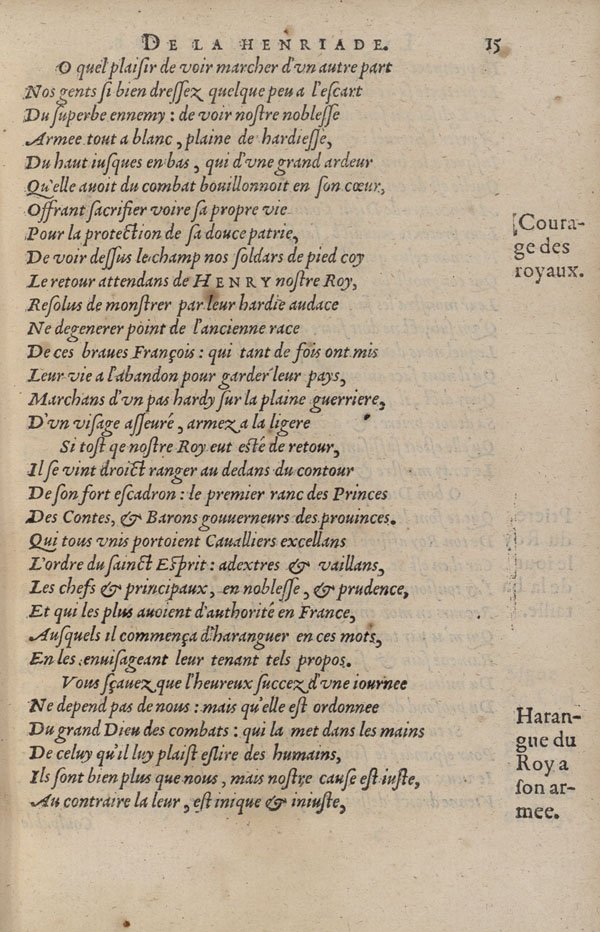 DE LA HENRIADE. 15
O quel plaisir de voir marcher d'vn autre part
Nos gents si bien dressez quelque peu a l'escart
Du superbe ennemy : de voir nostre noblesse
Armee tout a blanc, plaine de hardiesse,
Du haut iusques en bas, qui d'vne grand ardeur
Qu'elle auoit du combat bouillonnoit en son cœur,
Offrant sacrifier voire sa propre vie
Pour la protection de sa douce patrie,
De voir dessus le champ nos soldars de pied coy
Le retour attendans de HENRY nostre Roy,
Resolus de monstrer par leur hardie audace
Ne degenerer point de l'ancienne race
De ces braues François : qui tant de fois ont mis
Leur vie a l'abandon pour garder leur pays,
Marchans d'vn pas hardy sur la plaine guerriere,
D'vn visage asseuré, armez a la ligere
Si tost qe nostre Roy eut esté de retour,
Il se vint droict ranger au dedans du contour
De son fort escadron : le premier ranc des Princes
Des Contes, & Barons gouuerneurs des prouinces.
Qui tous vnis portoient Caualliers excellans
L'ordre du sainct Esprit : adextres & vaillans,
Les chefs & principaux, en noblesse, & prudence,
Et qui les plus auoient d'authorité en France,
Ausquels il commença d'haranguer en ces mots,
En les enuisageant leur tenant tels propos.
Vous sçauez que l'heureux succez d'vne iournee
Ne depend pas de nous : mais qu'elle est ordonnee
Du grand Dieu des combats : qui la met dans les mains
De celuy qu'il luy plaist eslire des humains,
Ils sont bien plus que nous, mais nostre cause est iuste,
Au contraire la leur, est inique & iniuste,
Coura-
ge des
royaux.
Haran-
gue du
Roy a
son ar-
mee.